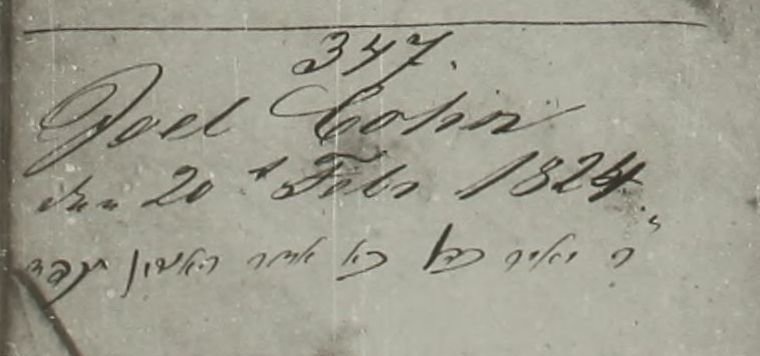 347.
Joel Cohn
den 20t Febr 1824.
ר יואל כהן כא אדר ראשון תקפד